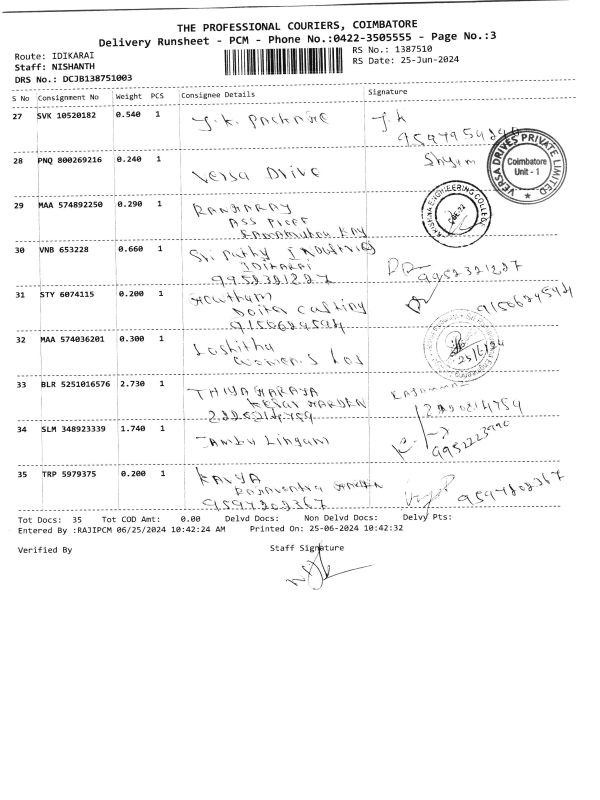 THE PROFESSIONAL COURIERS, COIMBATORE
Delivery Runsheet - PCM - Phone No.:0422-3505555 - Page No.:3
Route: IDIKARAI
RS No.: 1387510
Staff: NISHANTH
RS Date: 25-Jun-2024
DRS No.: DCJB138751003
S No Consignment No Weight PCS Consignee Details Signature
27 SVK 10520182 0.540 1 J.K. PACKAGE J.K
28 PNQ 800269216 0.240 1 Versa Drive Shyam
VERSA DRIVES PRIVATE LIMITED
Coimbatore
Unit - 1
29 MAA 574892250 0.290 1
ASS PROF
ENGINEERING COLLEGE
30 VNB 653228 0.660 1
IDIKARAI
9952321227 9952321227
31 STY 6074115 0.200 1 Goutham
9150624594 9150624594
32 MAA 574036201 0.300 1 Loshitha
Women.s Hos
33 BLR 5251016576 2.730 1 THIYAGARAYA
34 SLM 348923339 1.740 1 Jambu Lingam
35 TRP 5979375 0.200 1 KAVYA
9597202367 9597202367
Tot Docs: 35 Tot COD Amt: 0.00 Delvd Docs: Non Delvd Docs: Delvy Pts:
Entered By :RAJIPCM 06/25/2024 10:42:24 AM Printed On: 25-06-2024 10:42:32
Verified By Staff Signature